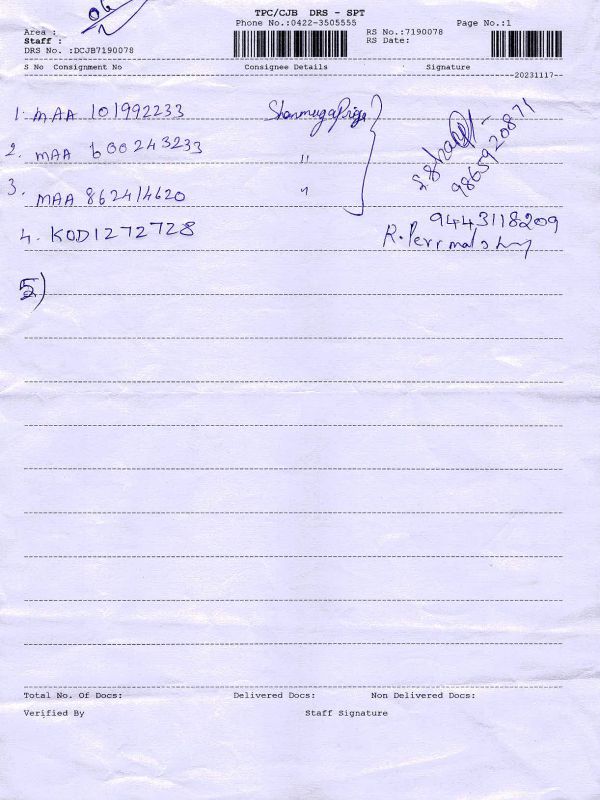 06/2
TPC/CJB DRS - SPT
Phone No.:0422-3505555 Page No.:1
Area : RS No.:7190078
Staff : RS Date:
DRS No. :DCJB7190078
S No Consignment No Consignee Details Signature
20231117
1. MAA 101992233 Shanmuga Priya
2. MAA 600243233 "
3. MAA 862414620 "
9865920871
4. KOD1272728 9443118209
5)
Total No. Of Docs: Delivered Docs: Non Delivered Docs:
Verified By Staff Signature